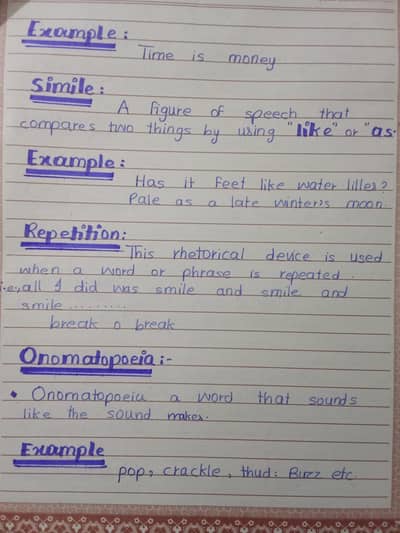 Example :
Time is money
Simile :
A figure of speech that
compares two things by using "like" or "as.
Example :
Has it feet like water lilles?
Pale as a late winter's moon
Repetition:
This rhetorical device is used
when a word or phrase is repeated.
i.e., all I did was smile and smile and
smile .........
break o break
Onomatopoeia :-
• Onomatopoeia a word that sounds
like the sound makes.
Example
pop, crackle, thud: Buzz etc.